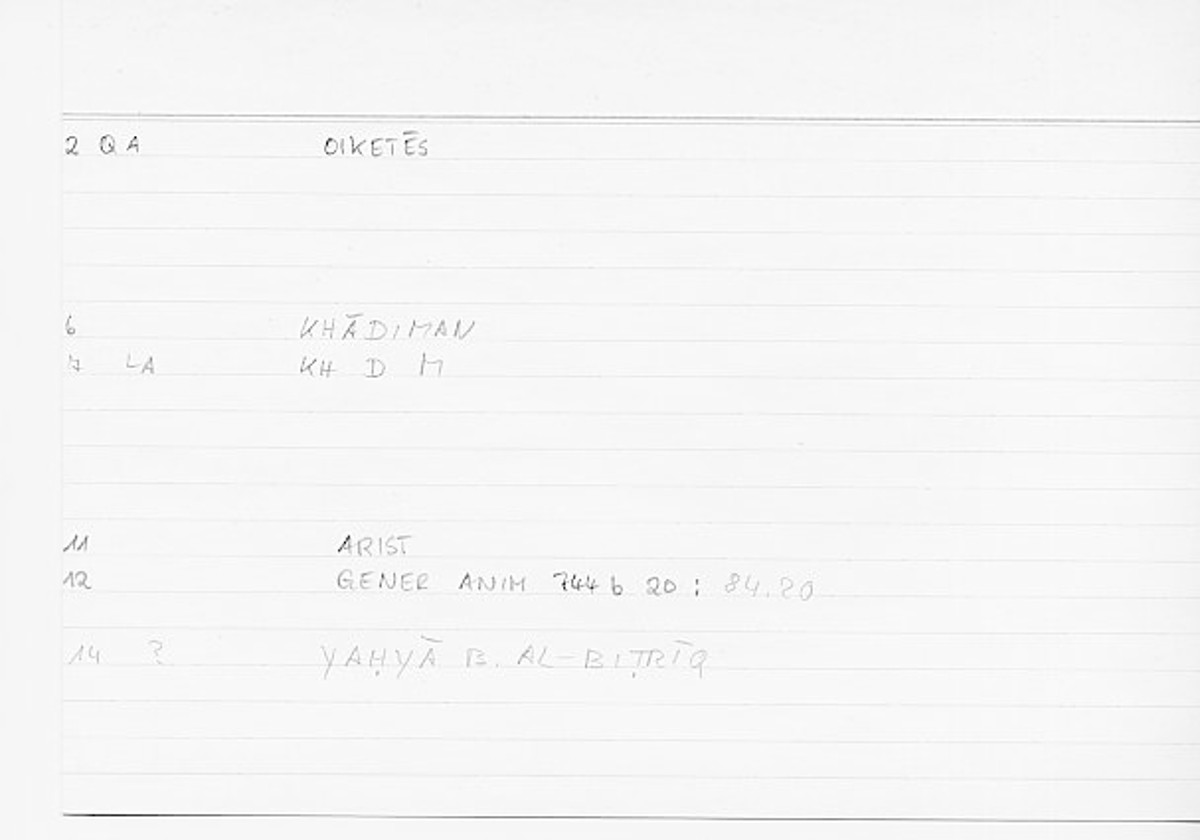 2 QA OIKETĒS
6 KHĀDIMAN
7 LA KH D M
11 ARIST
12 GENER ANIM 744 b 20 : 84.20
14 ? YAḤYĀ B. AL-BIṬRĪQ